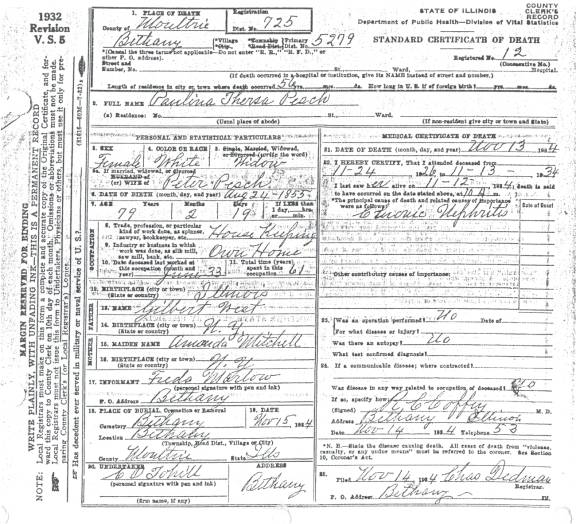 1932
Revision
V. S. 5
STATE OF ILLINOIS
Department of Public Health—Division of Vital Statistics
COUNTY
CLERK'S
RECORD
STANDARD CERTIFICATE OF DEATH
Registered No. 12
(Consecutive No.)
1. PLACE OF DEATH
County of Moultrie
Registration
Dist. No. 725
Bethany
*Village *Township Primary
*City. *Road Dist. Dist. No. 5279
*(Cancel the three terms not applicable—Do not enter "R. R.," "R. F. D.," or
other P. O. address).
Street and
Number, No. St., Ward, Hospital.
(If death occurred in a hospital or institution, give its NAME instead of street and number.)
Length of residence in city or town where death occurred 56 yrs. mos. ds. How long in U. S. if of foreign birth? yrs. mos. ds.
2. FULL NAME Paulina Thersa Pesch
(a) Residence: No. St. Ward.
(Usual place of abode) (If non-resident give city or town and State)
PERSONAL AND STATISTICAL PARTICULARS
3. SEX
Female
4. COLOR OR RACE
White
5. Single, Married, Widowed,
or Divorced (write the word)
Widow
5a. If married, widowed, or divorced
HUSBAND of
(or) WIFE of Peter Pesch
6. DATE OF BIRTH (month, day, and year) Aug 24 - 1855
7. AGE Years Months Days If LESS than
1 day, hrs.
or min.
79 2 19
OCCUPATION
8. Trade, profession, or particular
kind of work done, as spinner,
sawyer, bookkeeper, etc. House Keeping
9. Industry or business in which
work was done, as silk mill,
saw mill, bank, etc. Own Home
10. Date deceased last worked at
this occupation (month and
year) June 33
11. Total time (years)
spent in this
occupation 61
12. BIRTHPLACE (city or town)
(State or country) Illinois
FATHER
13. NAME Gilbert West
14. BIRTHPLACE (city or town) N. Y.
(State or country)
MOTHER
15. MAIDEN NAME Amanda Mitchell
16. BIRTHPLACE (city or town) N. Y.
(State or country)
17. INFORMANT Freda Marlow
(personal signature with pen and ink)
P. O. Address Bethany
18. PLACE OF BURIAL, Cremation or Removal
Cemetery Bethany
19. DATE
Nov 15 1934
Location Bethany
(Township, Road Dist., Village or City)
County Moultrie State Ills
20. UNDERTAKER
(personal signature with pen and ink)
(firm name, if any)
ADDRESS
Bethany
MEDICAL CERTIFICATE OF DEATH
21. DATE OF DEATH (month, day, and year) Nov 13 1934
22. I HEREBY CERTIFY, That I attended deceased from
11-24 1926 to 11-13 1934
I last saw her alive on 11-12- 1934, death is said
to have occurred on the date stated above, at m.
*The principal cause of death and related causes of importance
were as follows: Date of Onset
Chronic Nephritis
Other contributory causes of importance:
23. Was an operation performed? No Date of
For what disease or injury?
Was there an autopsy? No
What test confirmed diagnosis?
24. If a communicable disease; where contracted?
Was disease in any way related to occupation of deceased? No
If so, specify how
(Signed) Coffey M. D.
Address Bethany Illinois
Date Nov-14 1934 Telephone 53
*N. B.—State the disease causing death. All cases of death from "violence,
casualty, or any undue means" must be referred to the coroner. See Section
10, Coroner's Act.
25.
Filed Nov 14 1934 Chas Dedman
Registrar.
P. O. Address Bethany
MARGIN RESERVED FOR BINDING
WRITE PLAINLY, WITH UNFADING INK—THIS IS A PERMANENT RECORD
Has decedent ever served in military or naval service of U. S.?